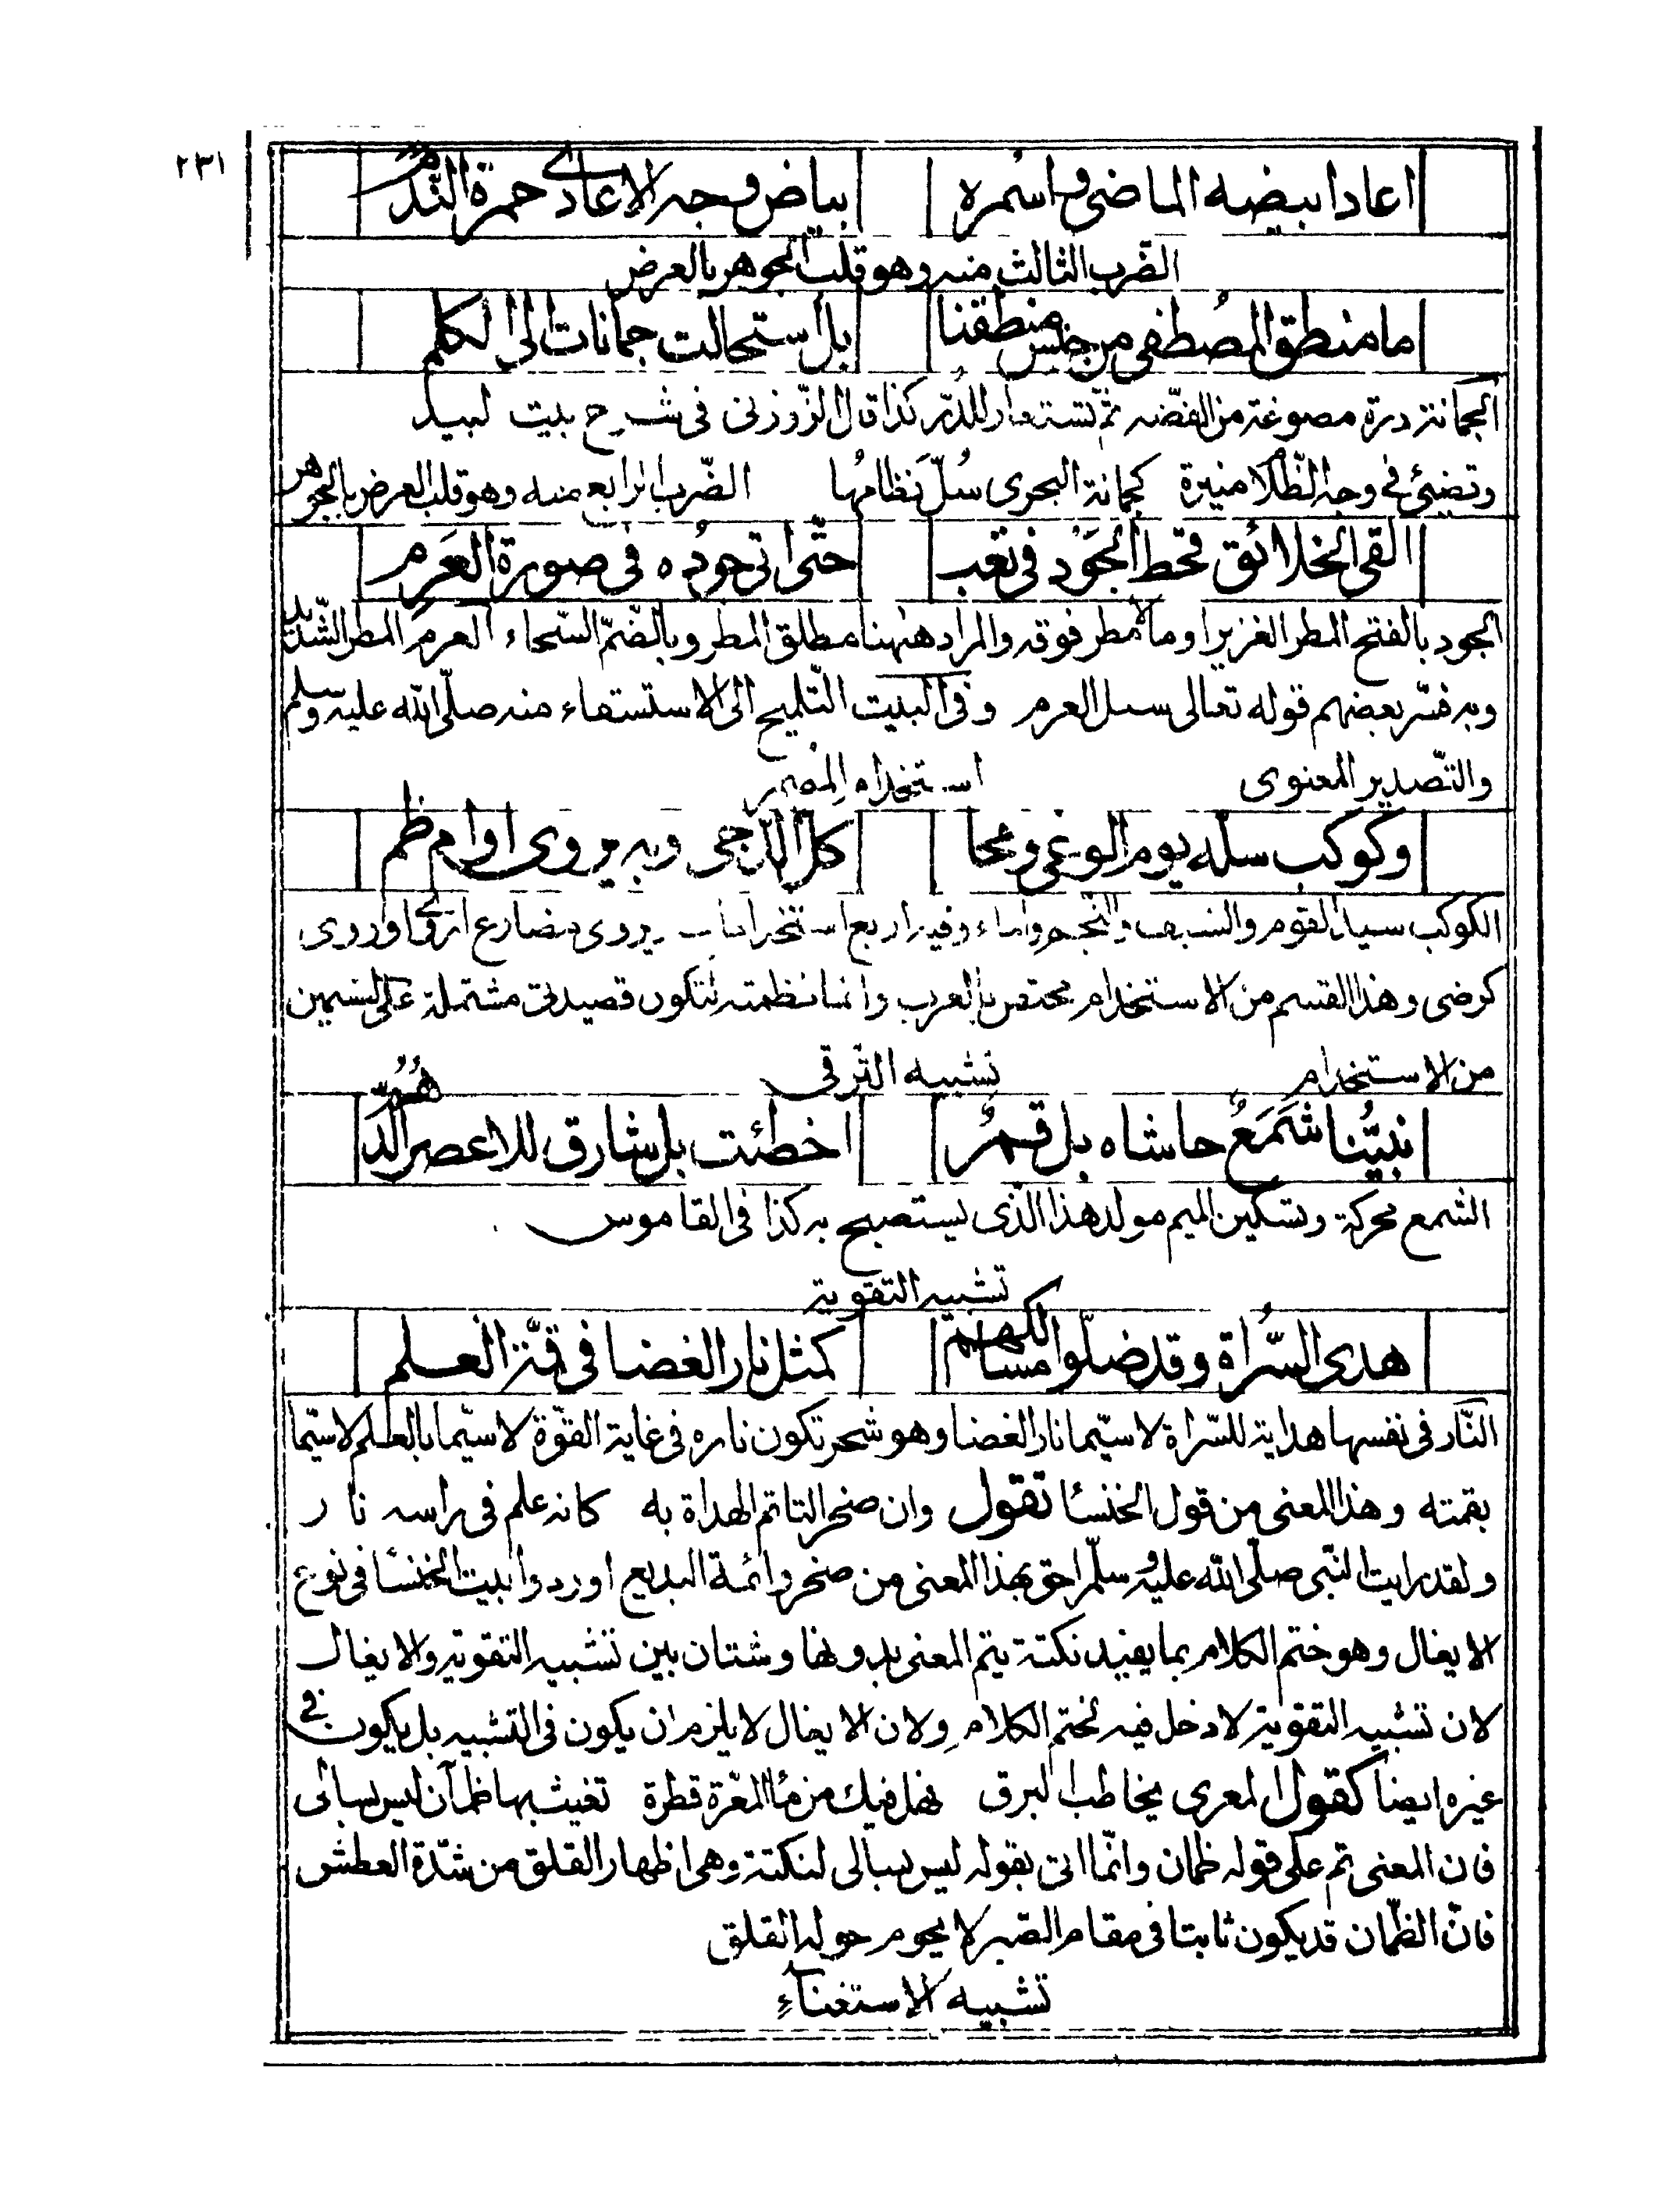 ٢٣١
اعاد ابيضه الماضي واسمره بياض وجه الاعادي حمرة الندم
الضرب الثالث منه وهو قلب الجوهر بالعرض
ما منطق المصطفى من جنس منطقنا بل استحالت جمانات الى الكلم
الجمانة درة مصوغة من الفضه ثم تستعار للدر كذا قال الزوزنى فى شرح بيت لبيد
وتضيئ في وجه الظلام منيرة كجمانة البحرى سُلّ نظامها الضرب الرابع منه وهو قلب العرض بالجوهر
القى الخلائق قحط الجَود فى تعب حتّى اتى جُوده فى صورة العَرم
الجود بالفتح المطر الغزير او ما لا مطر فوقه والمراد ههنا مطلق المطر وبالضمّ السّخاء العرم المطر الشديد
وبه فسّر بعضهم قوله تعالى سيل العرم وفى البيت التّلميح الى الاستسقاء منه صلّى الله عليه وسلم
والتّصدير المعنوى استخدام المضمر
وكوكب سله يوم الوغى ومحا كل الدجى وبه يروى اوام ظم
الكوكب سيد القوم والسيف والنّجم والماء وفيه اربع استخدامات يروى مضارع اروى او روى
كرضى وهذا القسم من الاستخدام مختص بالعرب وانما نظمته لتكون قصيدتى مشتملة على قسمين
من الاستخدام تشبيه الترقى
نبيُّنا شَمَعٌ حاشاه بل قمرٌ اخطئت بل شارق للاعصر الدُّهُم
الشمع محركة وتسكين الميم مولد هذا الّذى يستصبح به كذا فى القاموس
تشبيه التقوية
هدى السُّراة وقد ضلّوا مسالكهم كمثل نار الغضا فى قمّة العلم
النّار فى نفسها هداية للسّراة لا سيّما نار الغضا وهو شجر تكون ناره فى غاية القوّة لا سيّما بالعلم لا سيّما
بقمته وهذا المعنى من قول الخنسا تقول وان صخر التاتم الهداة به كانه علم فى راسه نار
ولقد رايت النّبى صلّى الله عليه وسلّم احق بهذا المعنى من صخر وائمة البديع اوردوا بيت الخنسا فى نوع
الايغال وهو ختم الكلام بما يفيد نكتة يتم المعنى بدونها وشتان بين تشبيه التقوية والايغال
لان تشبيه التقوية لا دخل فيه لختم الكلام ولان الايغال لا يلزم ان يكون فى التشبيه بل يكون في
غيره ايضا كقول المعرى يخاطب البرق فهل فيك من ما المعرّة قطرة تغيث بها ظمآن ليس بسالى
فان المعنى تم على قوله ظمان وانّما اتى بقوله ليس بسالى لنكتة وهى اظهار القلق من شدّة العطش
فانّ الظمّان قد يكون ثابتا فى مقام الصّبر لا يحوم حوله القلق
تشبيه الاستغناء